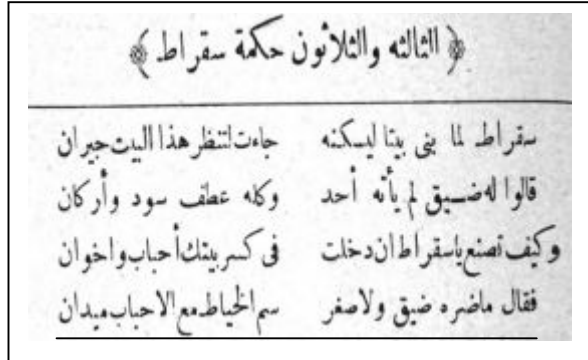 ﴿ الثالثه والثلاثون حكمة سقراط ﴾
سقراط لما بنى بيتا ليسكنه جاءت لتنظر هذا البيت جيران
قالوا له ضيق لم يأته أحد وكله عطف سود وأركان
وكيف تصنع ياسقراط ان دخلت فى كسر بيتك أحباب واخوان
فقال ماضره ضيق ولا صغر سم الخياط مع الاحباب ميدان